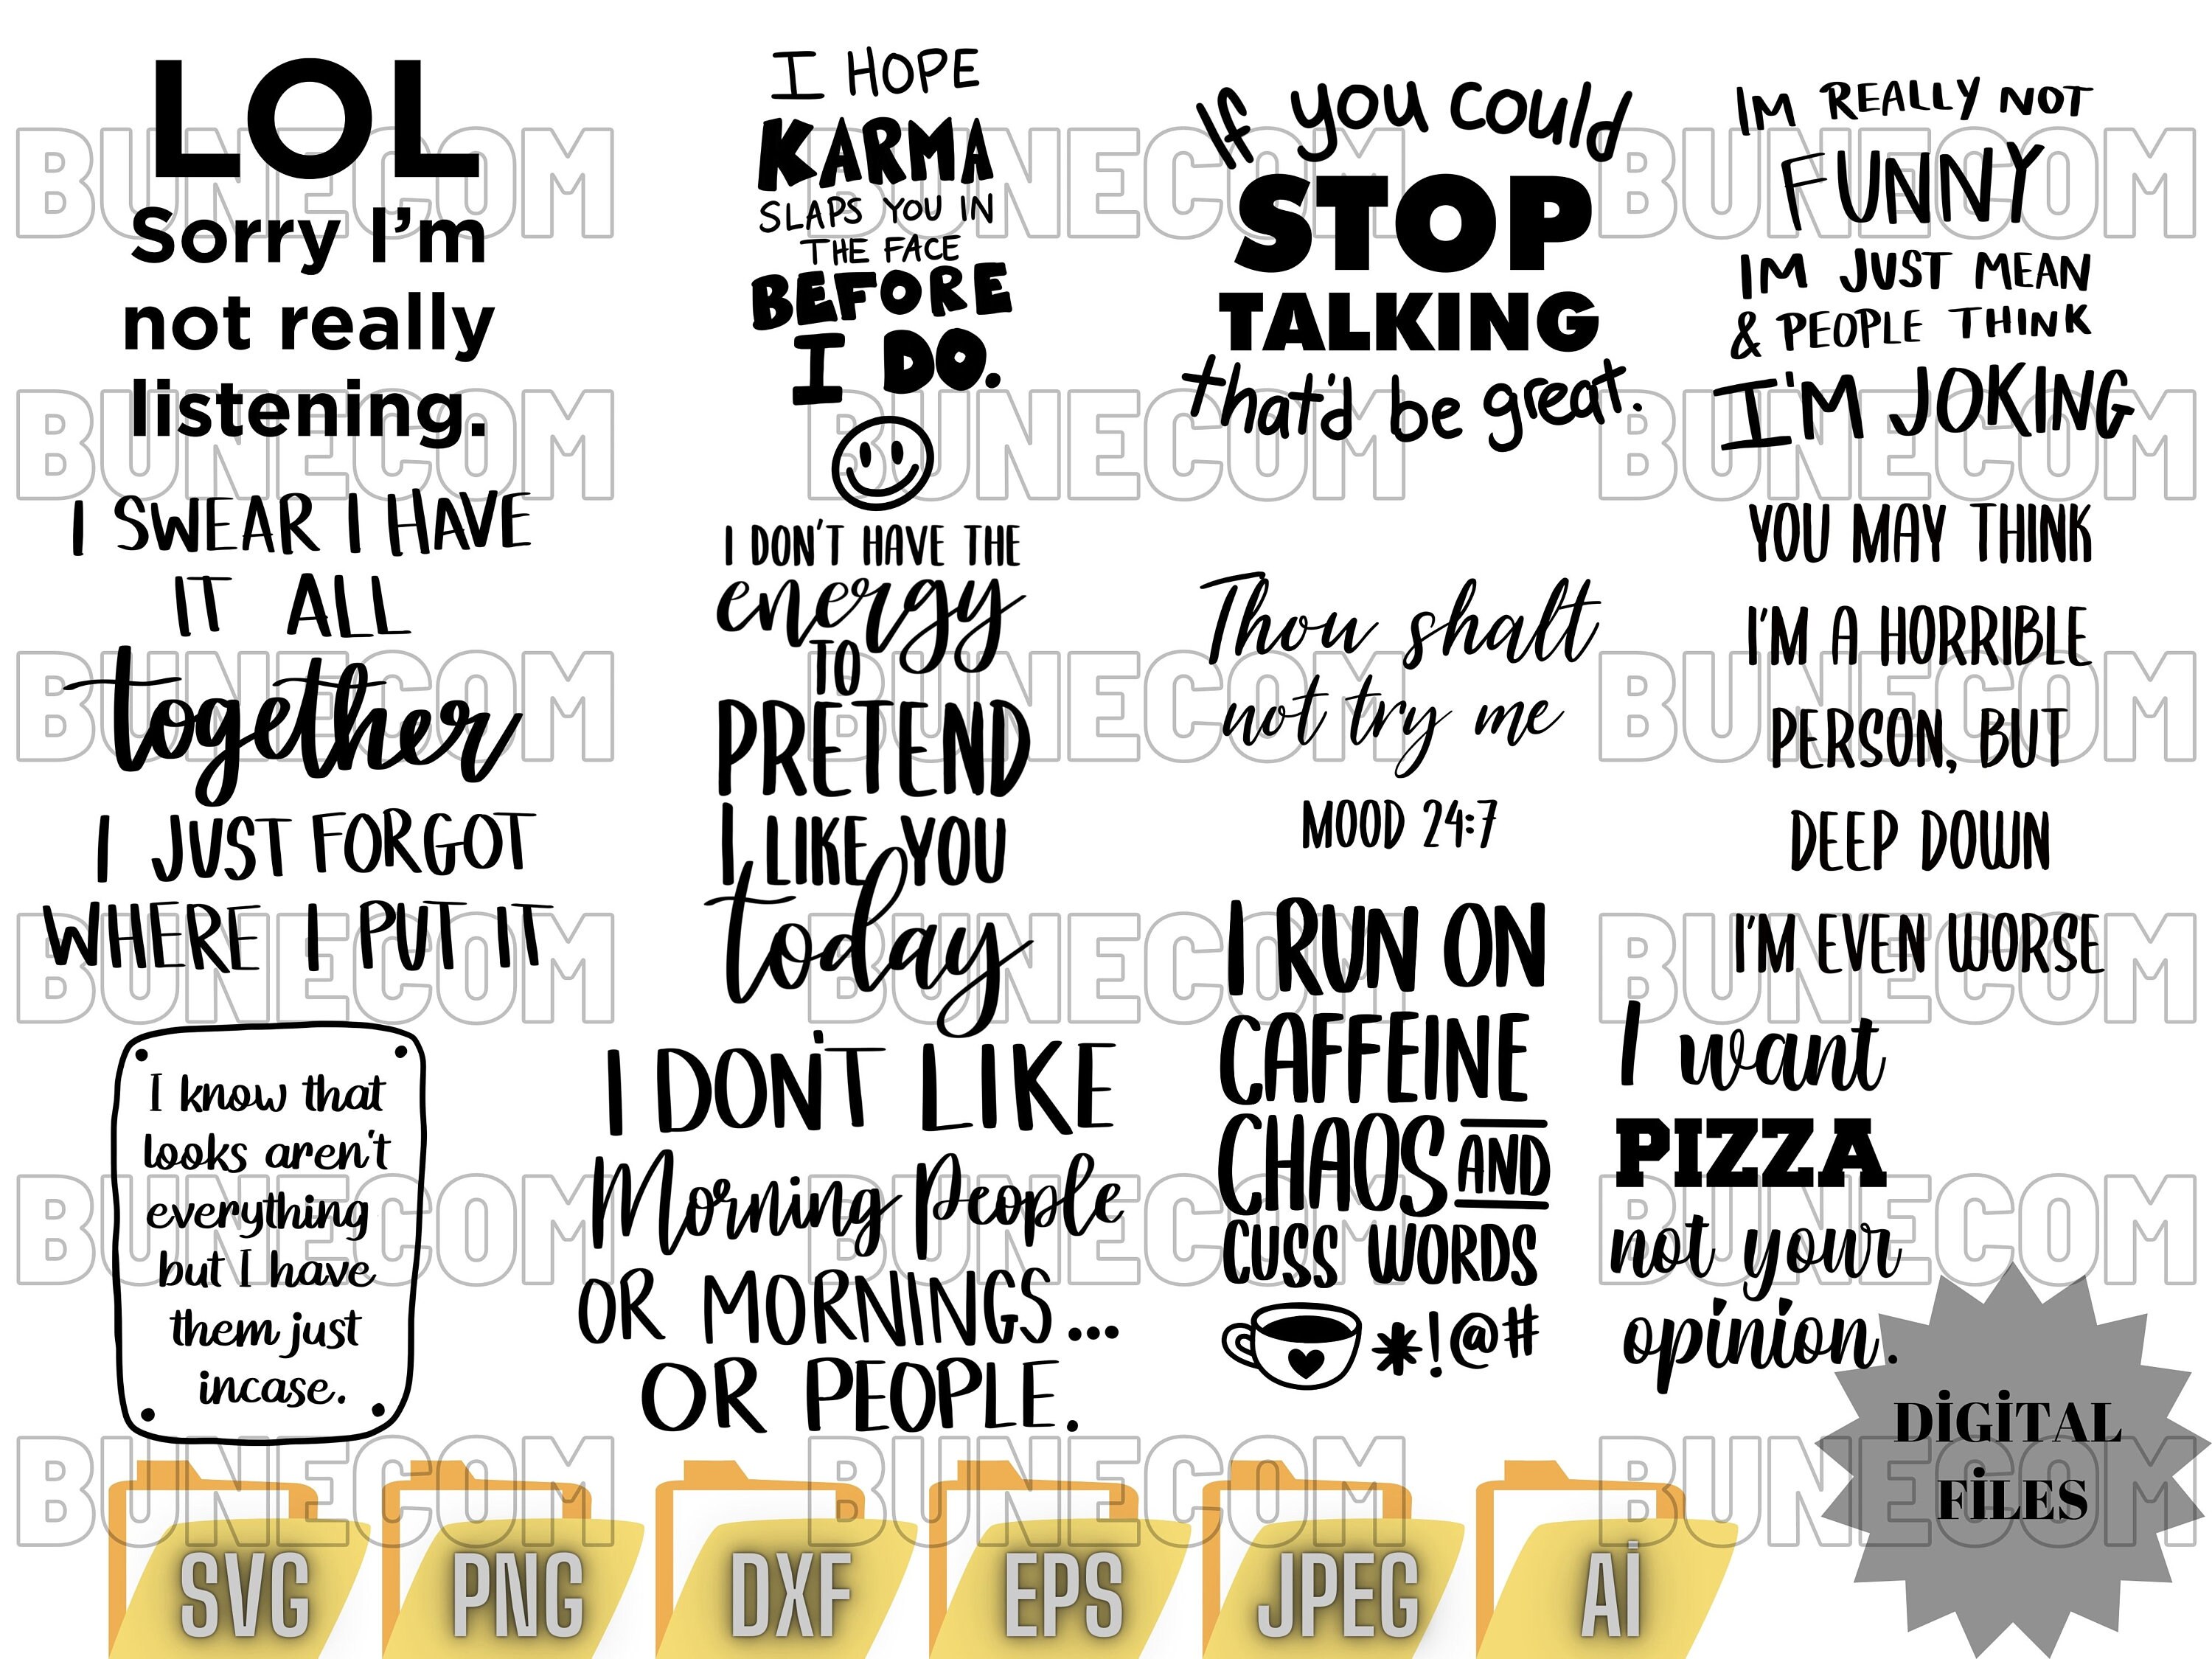 LOL
Sorry I'm
not really
listening.
I HOPE
KARMA
SLAPS YOU IN
THE FACE
BEFORE
I DO.
If you could
STOP
TALKING
that'd be great.
IM REALLY NOT
FUNNY
IM JUST MEAN
& PEOPLE THINK
I'M JOKING
I SWEAR I HAVE
IT ALL
together
I JUST FORGOT
WHERE I PUT IT
I DON'T HAVE THE
energy
TO
PRETEND
I LIKE YOU
today
Thou shalt
not try me
MOOD 24:7
YOU MAY THINK
I'M A HORRIBLE
PERSON, BUT
DEEP DOWN
I'M EVEN WORSE
I know that
looks aren't
everything
but I have
them just
incase.
I DON'T LIKE
Morning People
OR MORNINGS...
OR PEOPLE.
I RUN ON
CAFFEINE
CHAOS AND
CUSS WORDS
*!@#
I want
PIZZA
not your
opinion.
DİGİTAL
FİLES
SVG PNG DXF EPS JPEG Aİ
BUNECOM BUNECOM BUNECOM
BUNECOM BUNECOM BUNECOM
BUNECOM BUNECOM BUNECOM
BUNECOM BUNECOM BUNECOM
BUNECOM BUNECOM BUNECOM
BUNECOM BUNECOM BUNECOM